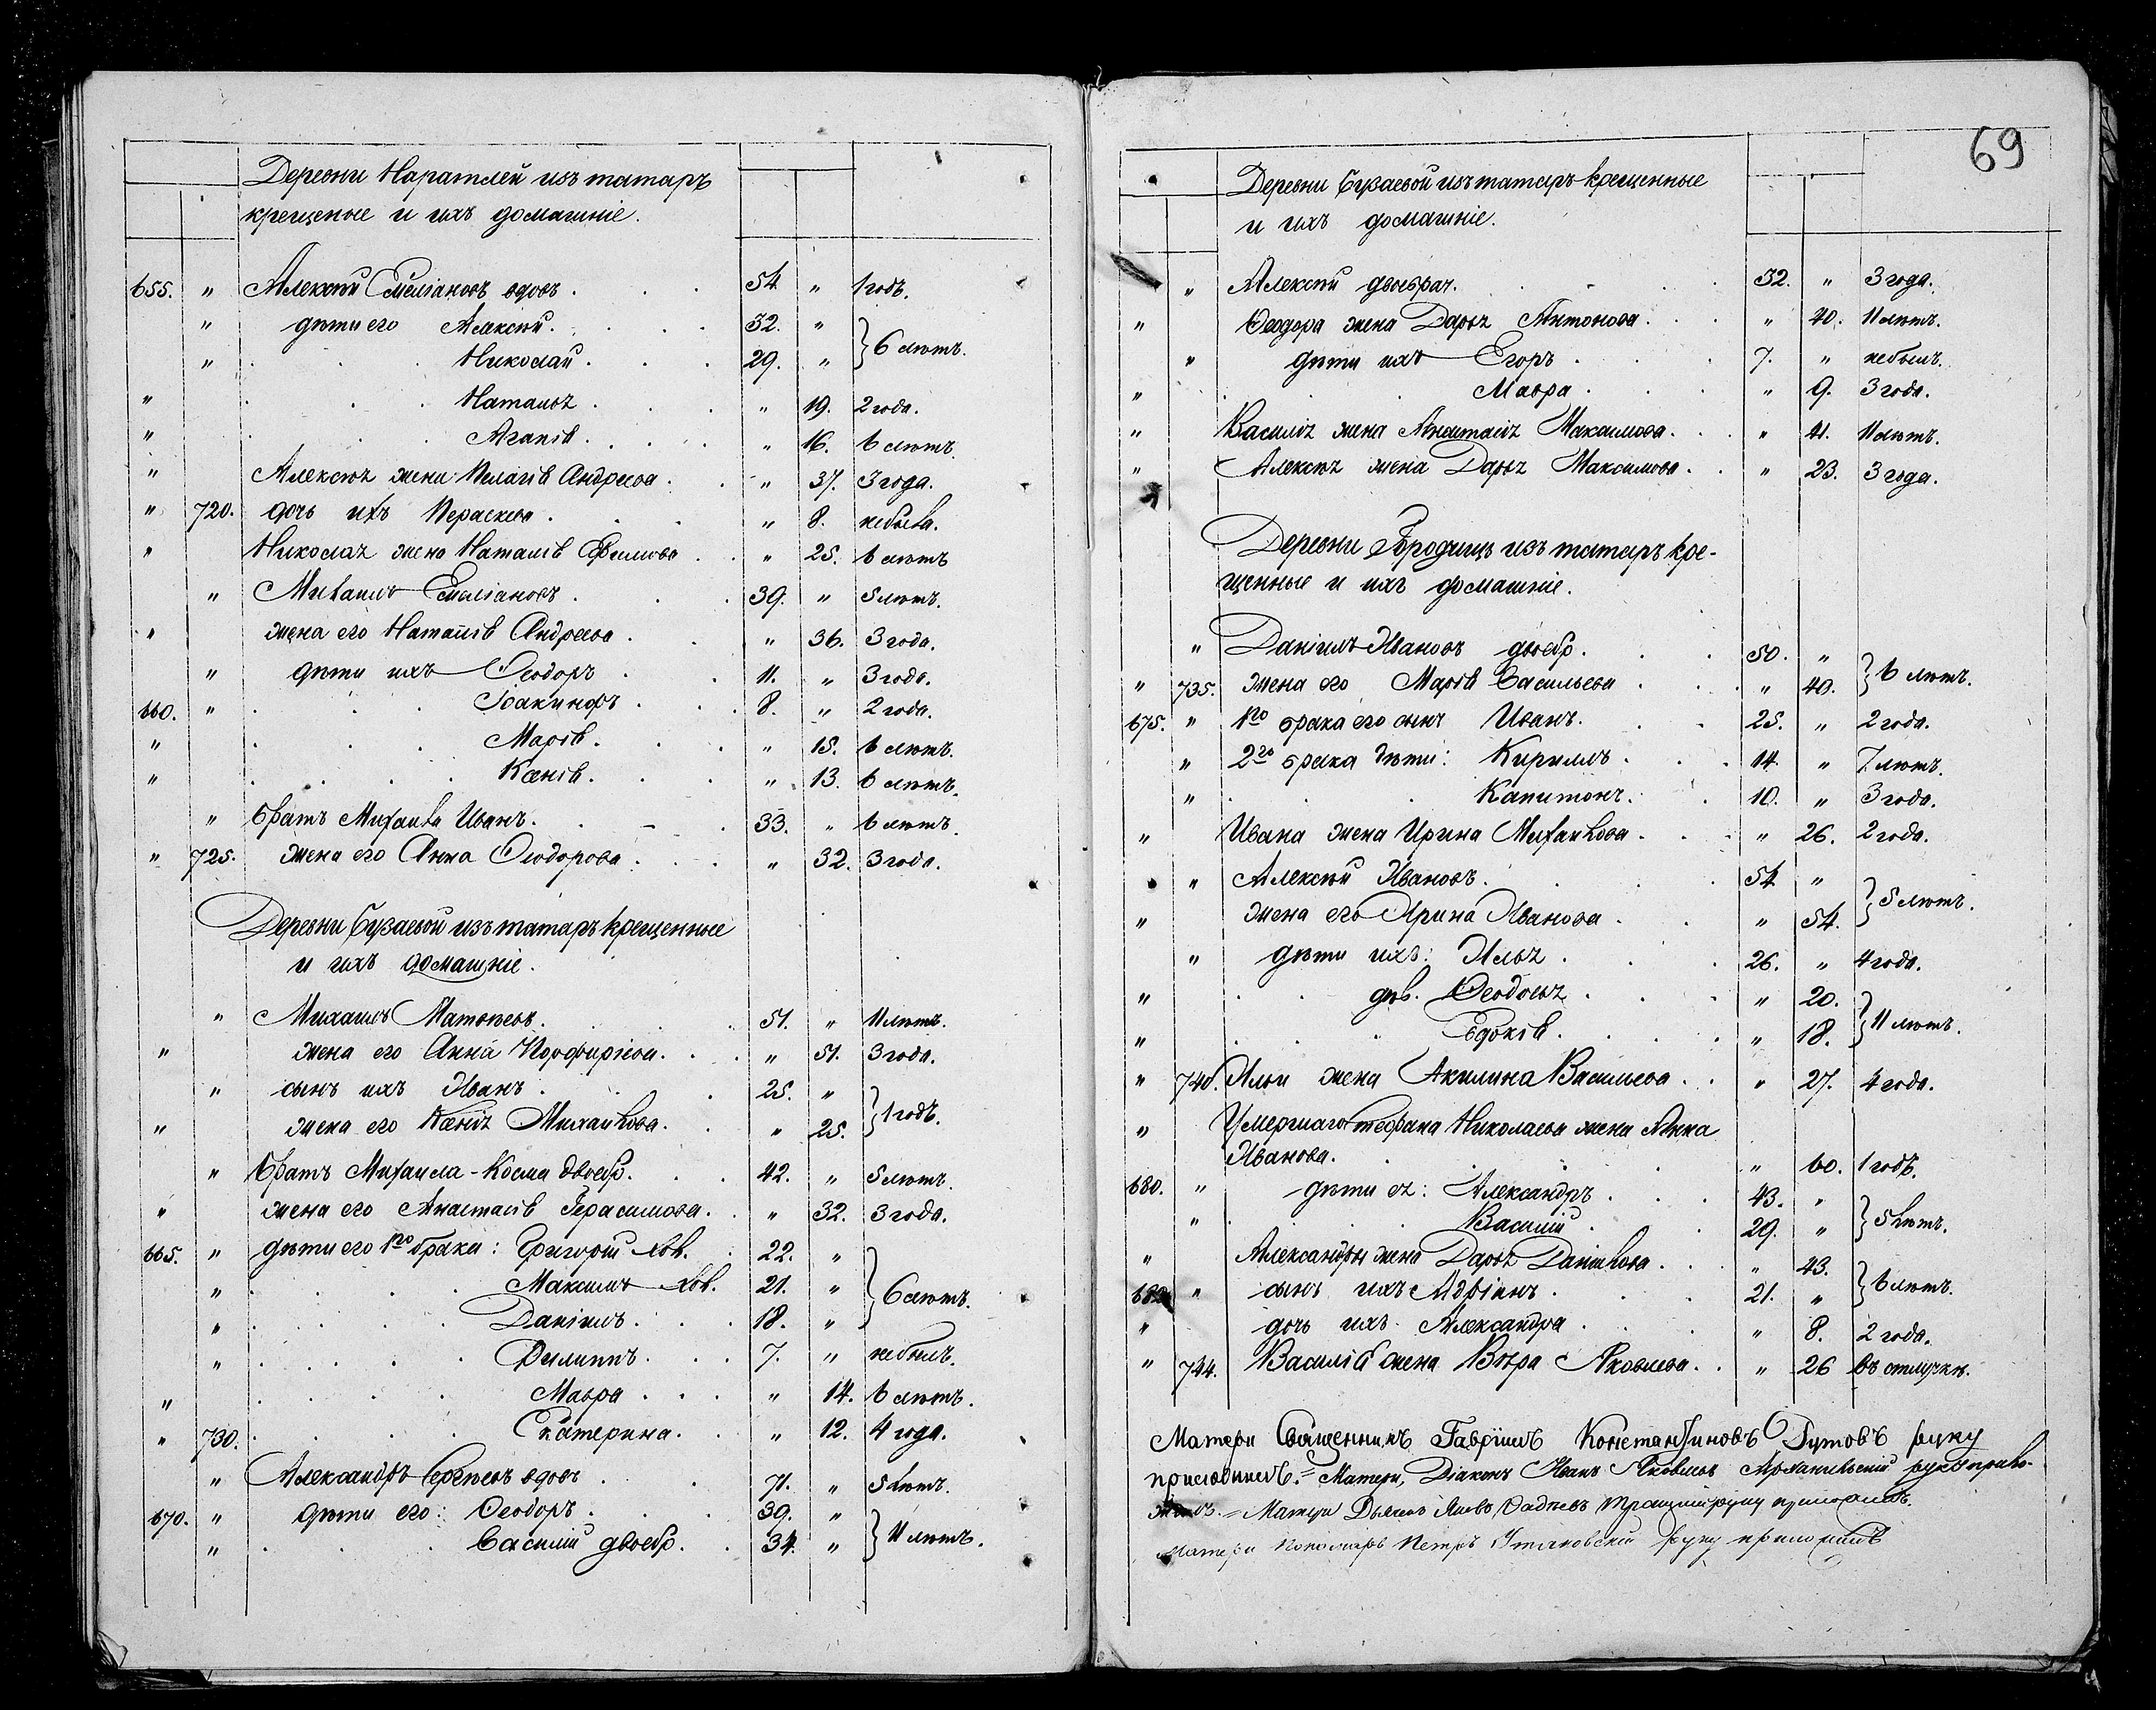 Деревни Наратлей изъ татаръ
крещеные и ихъ домашніе.
655. " Алексѣй Емеліановъ вдовъ . . . 54. " 1 годъ.
" дѣти его Алексѣй. . . . 32. " } 6 лѣтъ.
" . . . Николай . . . 29. "
" . . . Наталья . . . " 19. 2 года.
" . . . Агапія . . . " 16. 6 лѣтъ.
" Алексѣя жена Пелагія Андреева . . " 37. 3 года.
" 720. дочь ихъ Параскева . . . " 8. небыла.
" Николая жена Наталія Ефимова . . " 25. 6 лѣтъ
" Михаилъ Емеліановъ . . . 39. " 5 лѣтъ.
" жена его Наталія Андреева . . " 36. 3 года.
" дѣти ихъ Ѳеодоръ . . 11. " 3 года.
660. " . . . Іоакинфъ . . . 8. " 2 года.
" . . . Марія. . . . " 15. 6 лѣтъ.
" . . . Ксенія. . . . " 13. 6 лѣтъ.
" Братъ Михаила Иванъ. . . . 33. " 6 лѣтъ.
" 725. жена его Анна Ѳеодорова . . . " 32. 3 года.
Деревни Бузаевой изъ татаръ крещенные
и ихъ домашніе.
" Михаилъ Матвѣевъ. . . . 51. " 11 лѣтъ.
" жена его Анна Порфиріева. . . " 51. 3 года.
" сынъ ихъ Иванъ . . . 25. " } 1 годъ.
" жена его Ксенія Михайлова. . " 25.
" Братъ Михаила - Косма двоебр. . . 42. " 5 лѣтъ.
" жена его Анастасія Герасимова. . " 32. 3 года.
665. " дѣти его 1го брака: Григорій хол. . 22. " } 6 лѣтъ.
" . . . Максимъ хол. 21. "
" . . . Даніилъ. . . 18. "
" . . . Филиппъ. . . 7. " небылъ.
" . . . Мавра . . . " 14. 6 лѣтъ.
" 730. . . . Екатерина. . . " 12. 4 года.
" Александръ Сергѣевъ вдовъ . . 71. " 5 лѣтъ.
670. " дѣти его: Ѳеодоръ . . . 39. " } 11 лѣтъ.
" . . . Василій двоебр. . 34. "
69
Деревни Бузаевой изъ татаръ крещенные
и ихъ домашніе.
" Алексѣй двоебрач. . . . 32. " 3 года.
" Ѳеодора жена Дарья Антонова . . . " 40. 11 лѣтъ.
" дѣти ихъ Егоръ . . . 7. " небылъ.
" . . . Мавра . . . " 9. 3 года.
" Василія жена Анастасія Максимова. . . " 41. 11 лѣтъ.
" Алексѣя жена Дарья Максимова . . " 23. 3 года.
Деревни Городищъ изъ татаръ кре-
щенные и ихъ домашніе.
" Даніилъ Ивановъ двоебр. . . 50. " } 6 лѣтъ.
" 735. жена его Марія Васильева . . . " 40.
675. " 1го брака его сынъ Иванъ. . . 25. " 2 года.
" 2го брака дѣти: Кириллъ . . . 14. " 7 лѣтъ.
" . . . Капитонъ. . 10. " 3 года.
" Ивана жена Ирина Михайлова. . . " 26. 2 года.
" Алексѣй Ивановъ. . . . 54. " } 5 лѣтъ.
" жена его Ирина Иванова . . " 54.
" дѣти ихъ: Илья . . . 26. " 4 года.
" . . дѣв. Ѳеодосья . . . " 20. } 11 лѣтъ.
" . . . Евдокія. . . . " 18.
" 740. Ильи жена Акилина Васильева . . " 27. 4 года.
" Умершаго Стефана Николаева жена Анна
Иванова. . . . " 60. 1 годъ.
680. " дѣти ея: Александръ . . . 43. " } 5 лѣтъ.
" . . . Василій . . . 29. "
" Александра жена Дарья Данилова . . . " 43. } 6 лѣтъ.
682. " сынъ ихъ Адріанъ . . . 21. "
" дочь ихъ Александра . . . " 8. 2 года.
" 744. Василія жена Вѣра Яковлева . . " 26 въ отлучкѣ.
Матери Священникъ Гавріилъ Константиновъ руку
приложилъ. = Матери, Діаконъ Иванъ Яковлевъ Архангельскій руку прило-
жилъ. = Матери Дьячекъ Троицкій руку приложилъ.
Матери Пономарь Петръ руку приложилъ